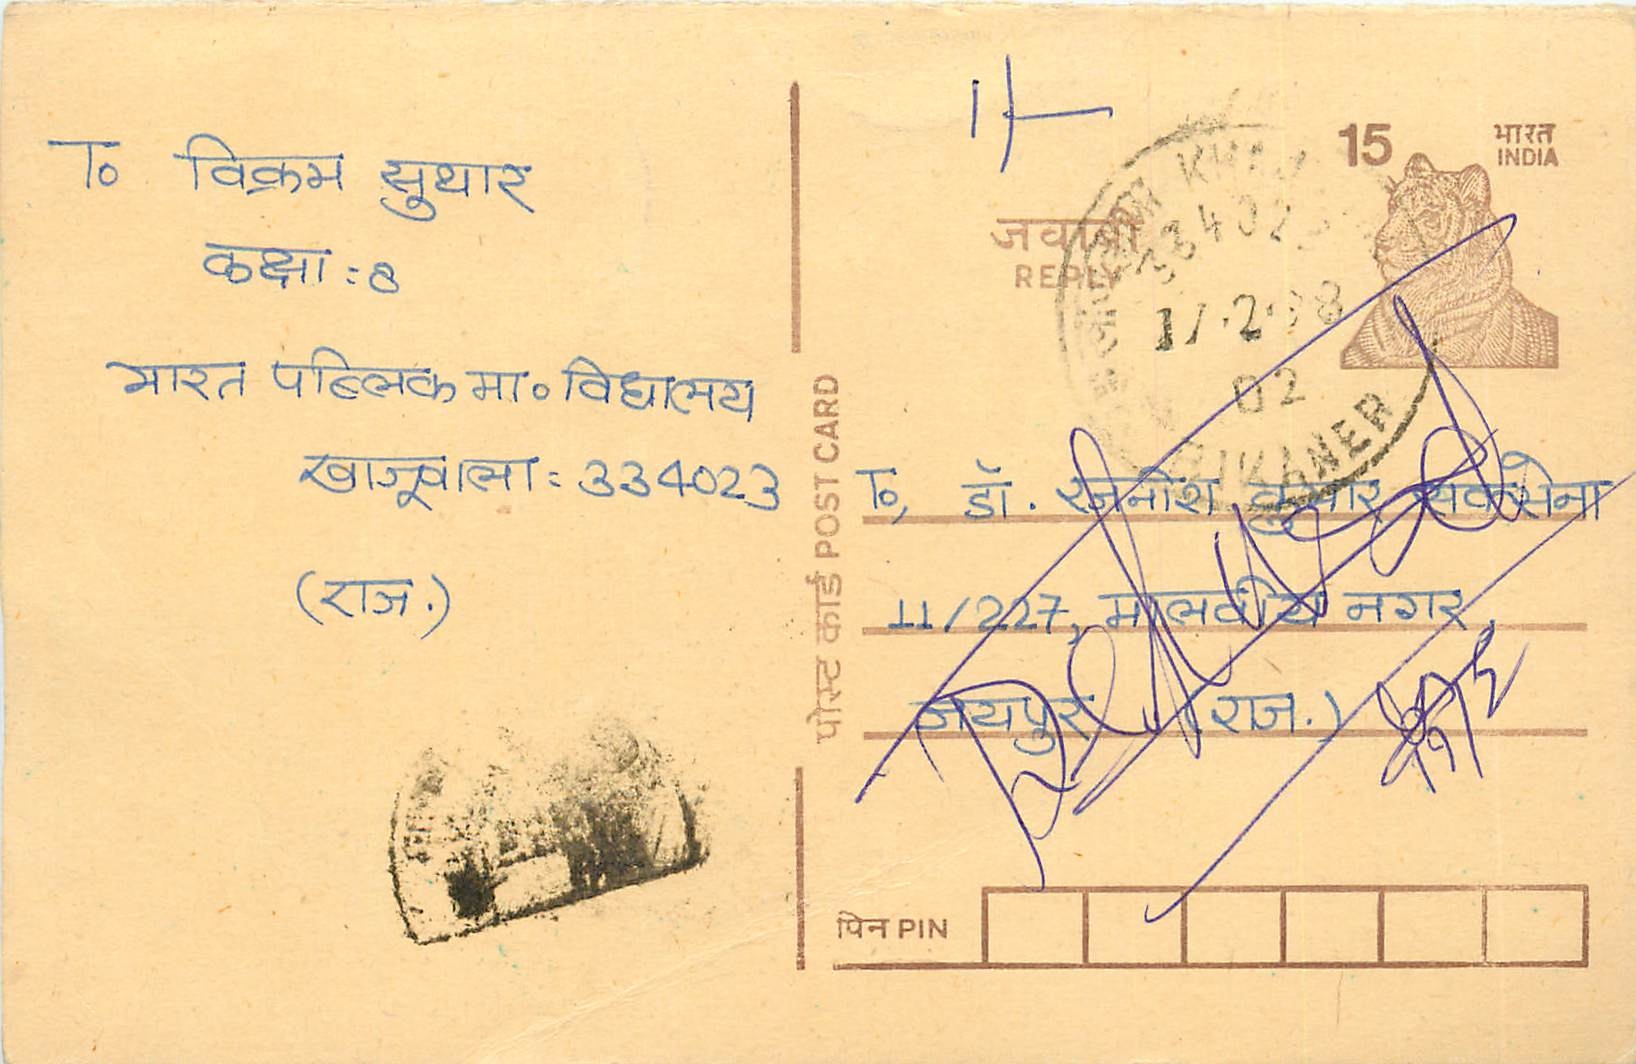 To विक्रम सुथार
कक्षा : 8
भारत पब्लिक मा० विद्यालय
खाजूवाला : 334023
(राज.)
1/-
15 भारत
INDIA
जवाबी
REPLY
334023
17.2.98
02
BIKANER
पोस्ट कार्ड POST CARD
To, डॉ. रजनीश कुमार सक्सेना
11/227, मालवीय नगर,
जयपुर (राज.)
पिन PIN